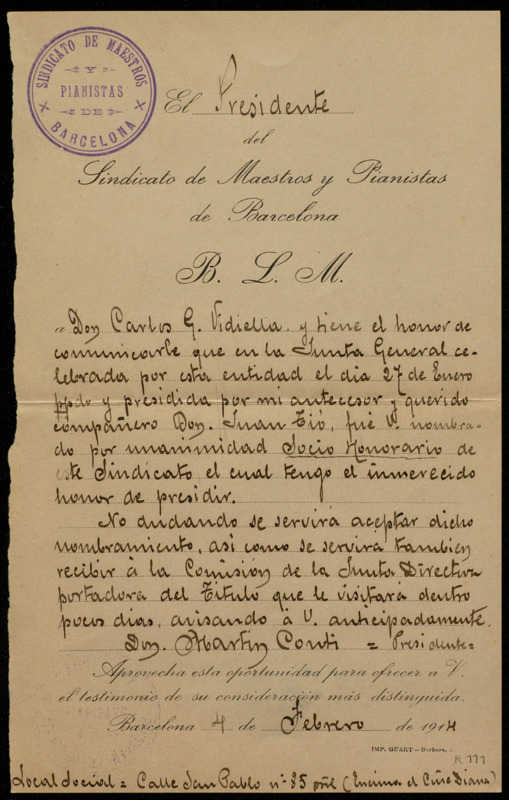 SINDICATO DE MAESTROS
Y
PIANISTAS
DE
BARCELONA
El Presidente
del
Sindicato de Maestros y Pianistas
de Barcelona
B. L. M.
a Don Carlos G. Vidiella y tiene el honor de
comunicarle que en la Junta General ce-
lebrada por esta entidad el dia 27 de Enero
ppdo y presidida por mi antecesor y querido
compañero Don. Juan Tió, fué V. nombra-
do por unanimidad Socio Honorario de
este Sindicato el cual tengo el inmerecido
honor de presidir.
No dudando se servirá aceptar dicho
nombramiento, asi como se servirá tambien
recibir á la Comisión de la Junta Directiva
portadora del Titulo que le visitará dentro
pocos dias, avisando á V. anticipadamente.
Don. Martin Conti = Presidente=
Aprovecha esta oportunidad para ofrecer a V.
el testimonio de su consideración más distinguida.
Barcelona 4 de Febrero de 1914
IMP. GUART - Borbara,
R. 777
Local Social = Calle San Pablo nº 85 pñl (Encima el Cine Diana)